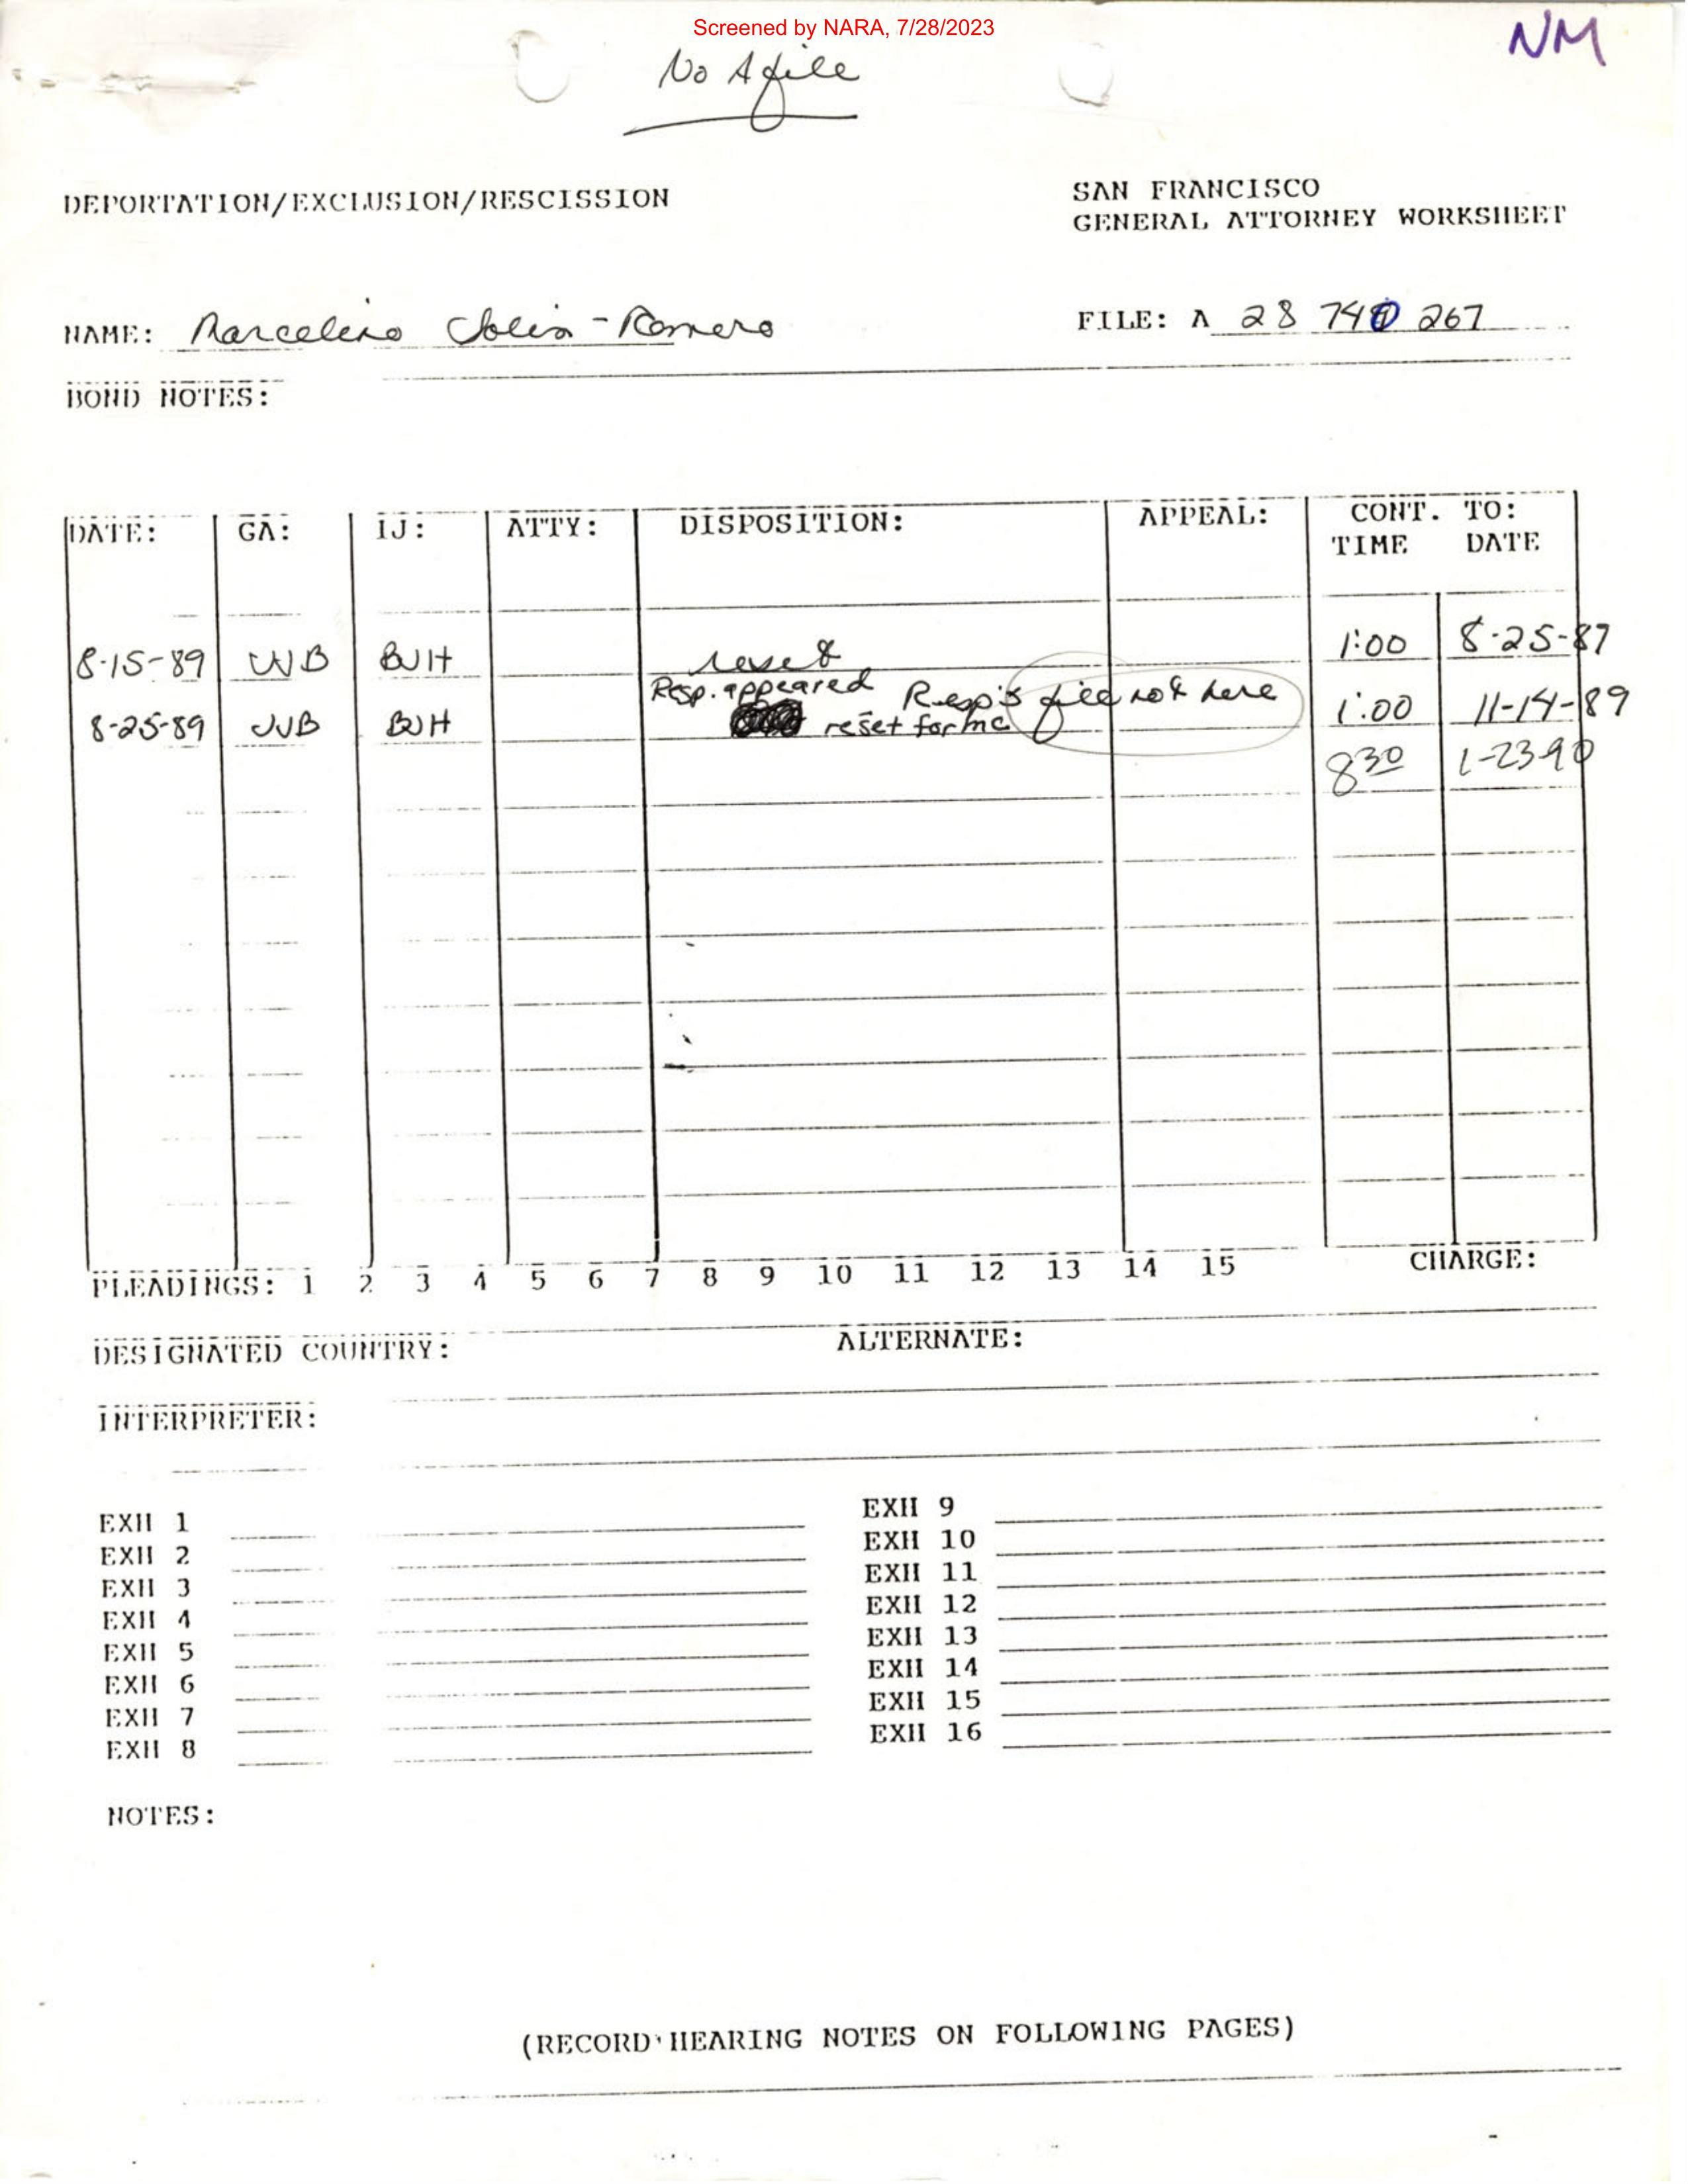 Screened by NARA, 7/28/2023
NM
No A file
DEPORTATION/EXCLUSION/RESCISSION
SAN FRANCISCO
GENERAL ATTORNEY WORKSHEET
NAME: Marcelino Solis-Romero
FILE: A 28 740 267
BOND NOTES:
DATE: GA: IJ: ATTY: DISPOSITION: APPEAL: CONT. TO:
TIME DATE
8-15-89 WB BJH reset 1:00 8-25-87
Resp. appeared Resp's file not here
8-25-89 JJB BJH reset for mc 1:00 11-14-89
8 30 1-23-90
PLEADINGS: 1 2 3 4 5 6 7 8 9 10 11 12 13 14 15 CHARGE:
DESIGNATED COUNTRY: ALTERNATE:
INTERPRETER:
EXH 1
EXH 2
EXH 3
EXH 4
EXH 5
EXH 6
EXH 7
EXH 8
EXH 9
EXH 10
EXH 11
EXH 12
EXH 13
EXH 14
EXH 15
EXH 16
NOTES:
(RECORD HEARING NOTES ON FOLLOWING PAGES)